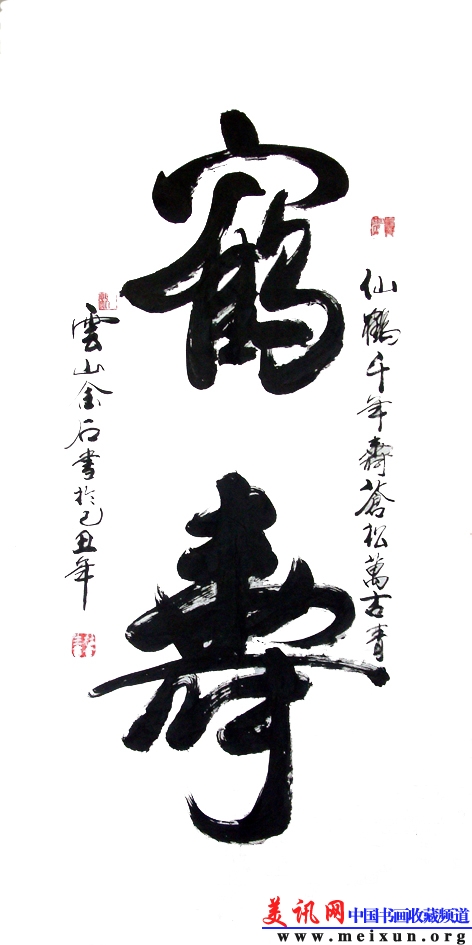 鶴壽
仙鶴千年壽蒼松萬古青
雲山金石書於己丑年
美讯网 中国书画收藏频道
www.meixun.org